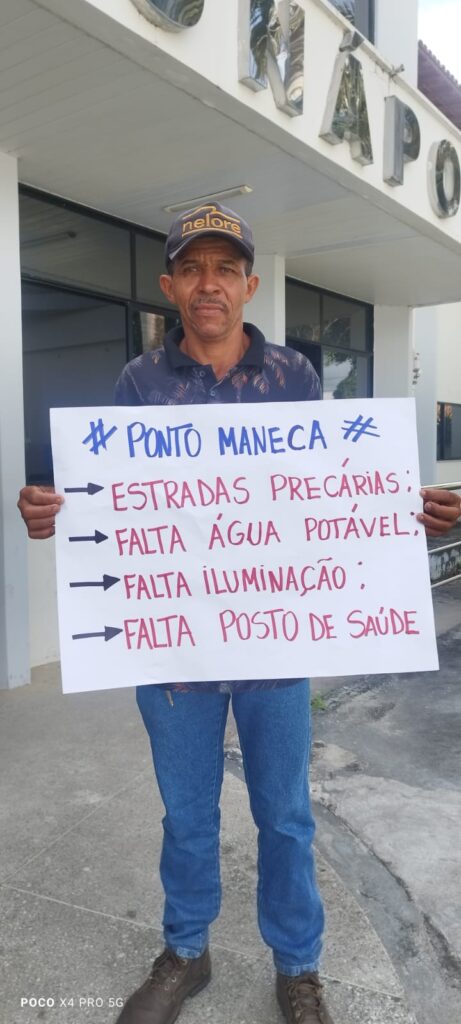 NAPO
nelore
# PONTO MANECA #
→ ESTRADAS PRECÁRIAS;
→ FALTA ÁGUA POTÁVEL;
→ FALTA ILUMINAÇÃO;
→ FALTA POSTO DE SAÚDE
POCO X4 PRO 5G